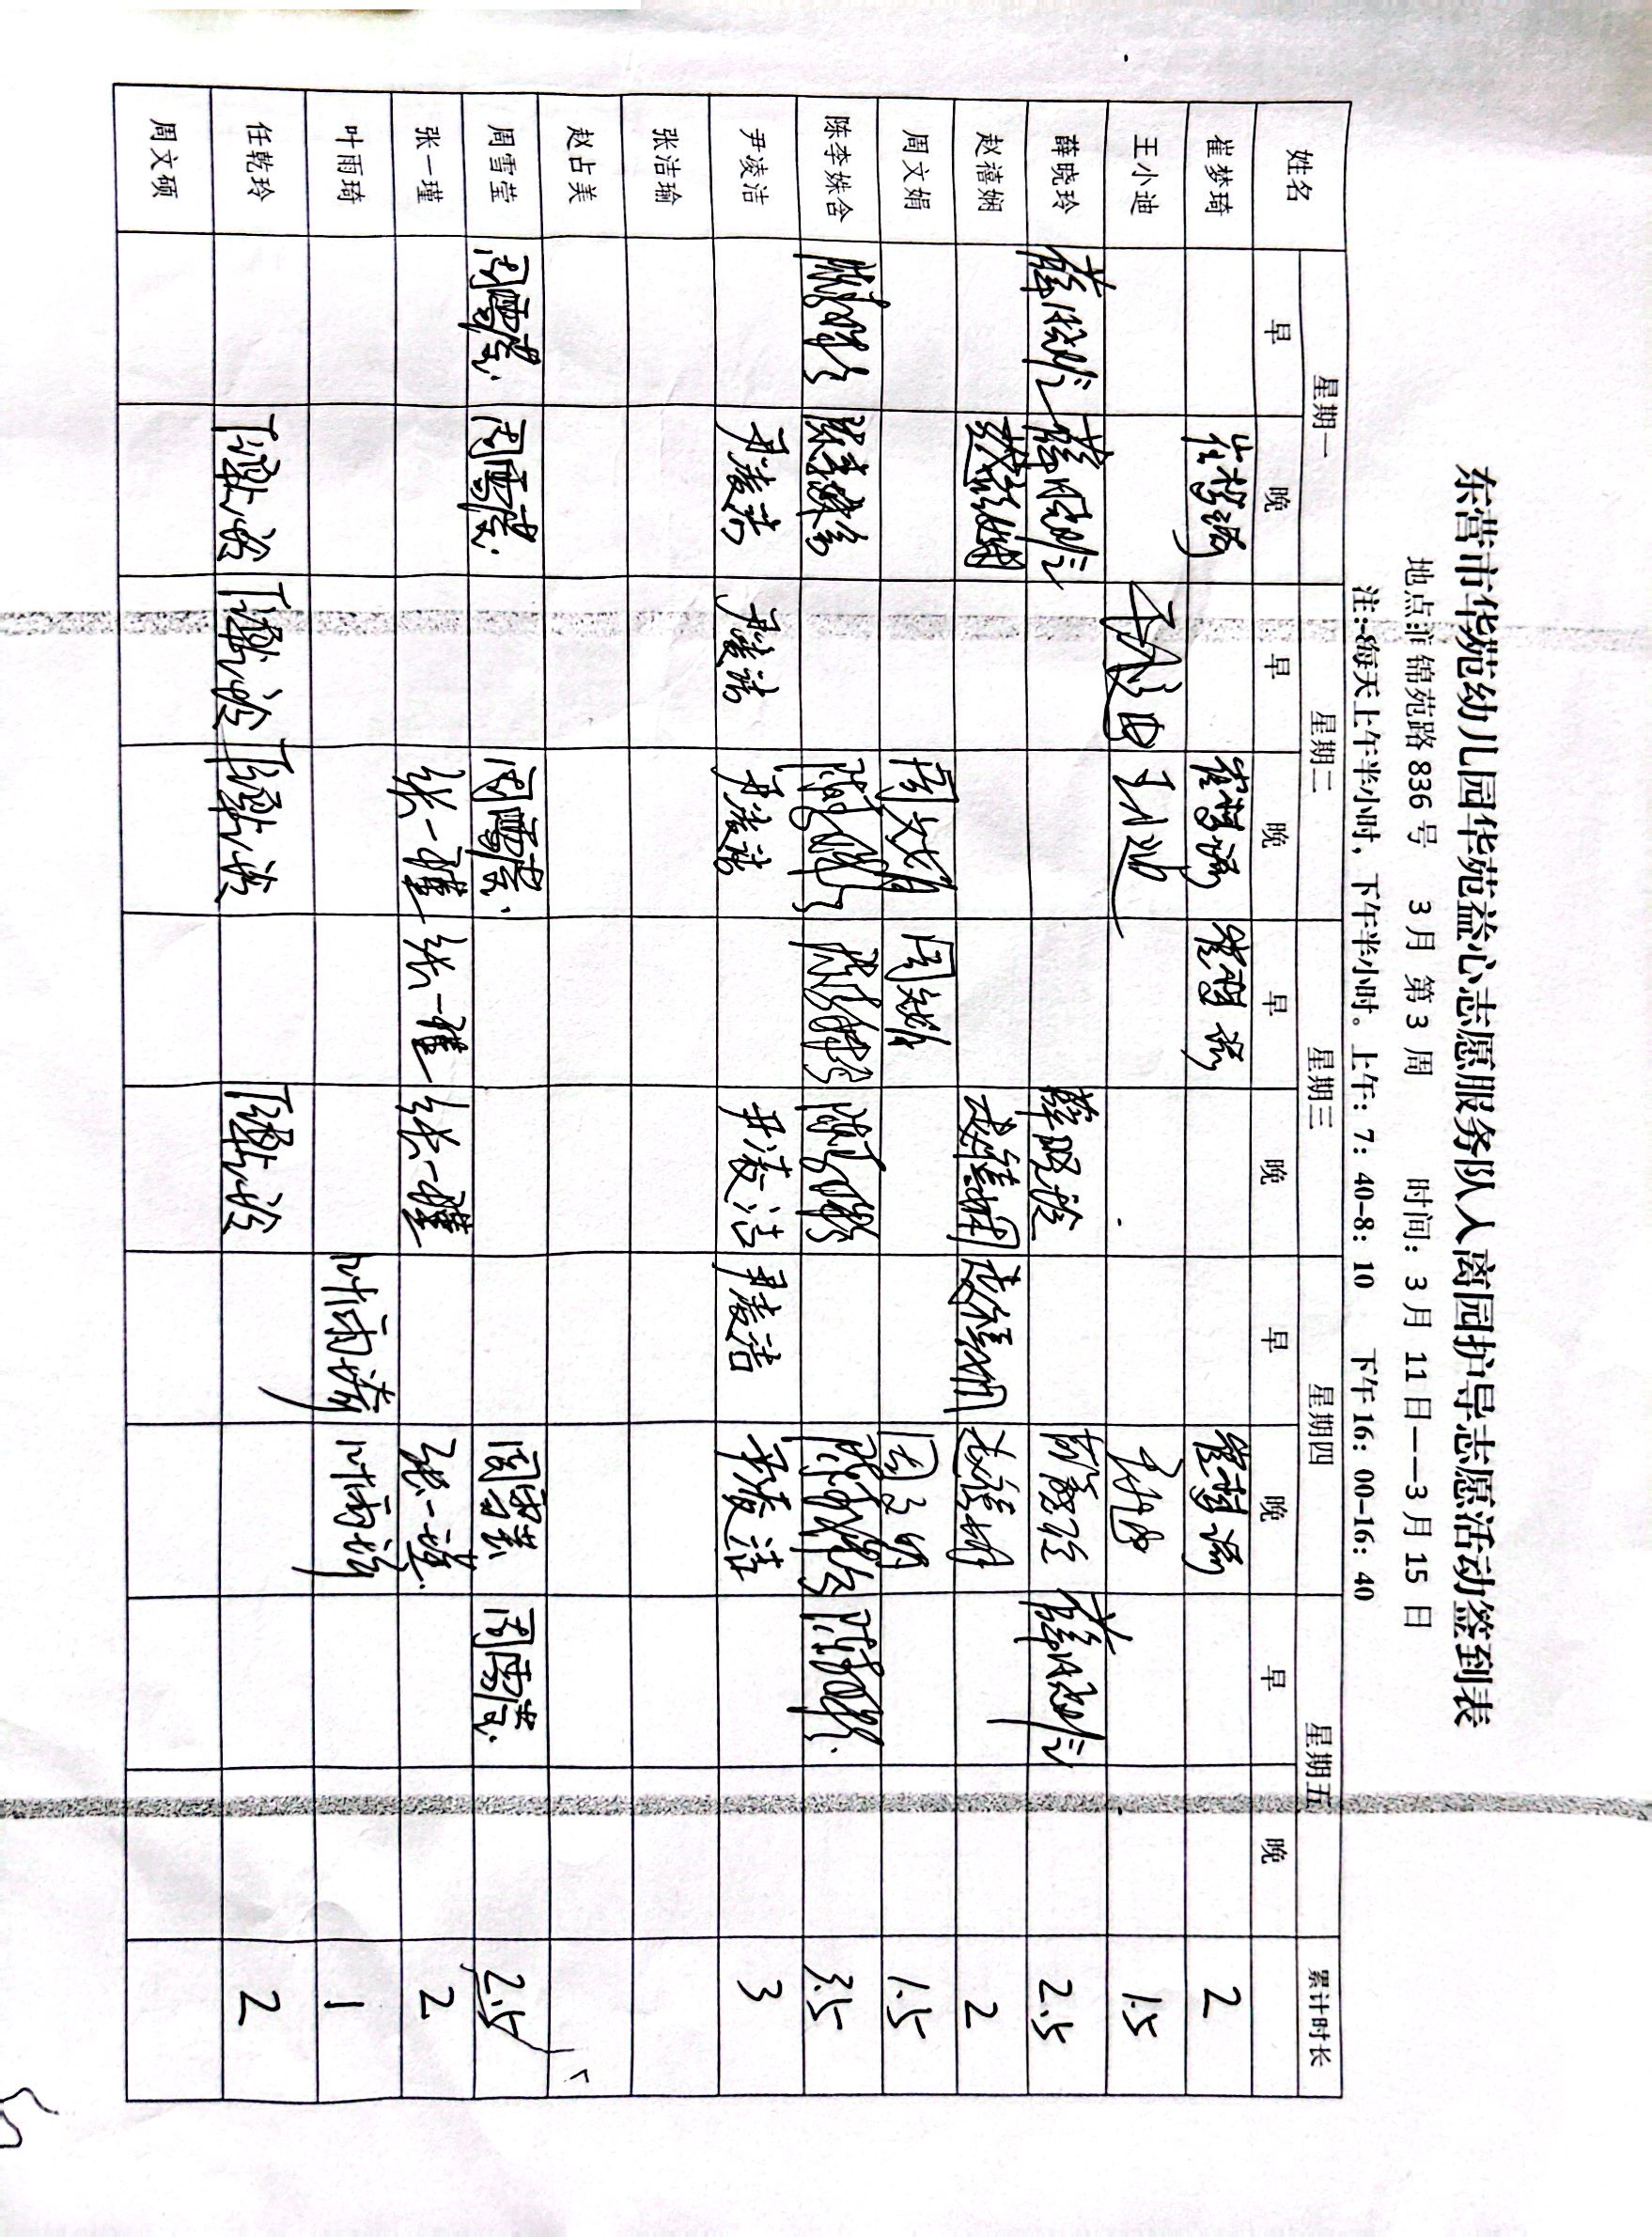 东营市华苑幼儿园华苑益心志愿服务队入离园护导志愿活动签到表
锦苑路 836 号 3 月 第 3 周 时间: 3 月 11 日——3 月 15 日
注:每天上午半小时, 下午半小时。上午: 7: 40-8: 10 下午 16: 00-16: 40
姓名 星期一 星期二 星期三 星期四 星期五 累计时长
早 晚 早 晚 早 晚 早 晚 早 晚
崔梦琦 崔梦琦 崔梦琦 崔梦琦 崔梦琦 2
王小迪 王小迪 王小迪 王小迪 1.5
薛晓玲 薛晓玲 薛晓玲 薛晓玲 薛晓玲 薛晓玲 2.5
赵禧娴 赵禧娴 赵禧娴 赵禧娴 赵禧娴 2
周文娟 周文娟 周文娟 周文娟 1.5
陈李姝含 陈李姝含 陈李姝含 陈李姝含 陈李姝含 陈李姝含 陈李姝含 陈李姝含 3.5
尹凌洁 尹凌洁 尹凌洁 尹凌洁 尹凌洁 尹凌洁 尹凌洁 3
张洁瑜
赵占美
周雪莹 周雪莹 周雪莹 周雪莹 周雪莹 周雪莹 2.5
张一瑾 张一瑾 张一瑾 张一瑾 张一瑾 2
叶雨琦 叶雨琦 叶雨琦 1
任乾玲 任乾玲 任乾玲 任乾玲 任乾玲 2
周文硕